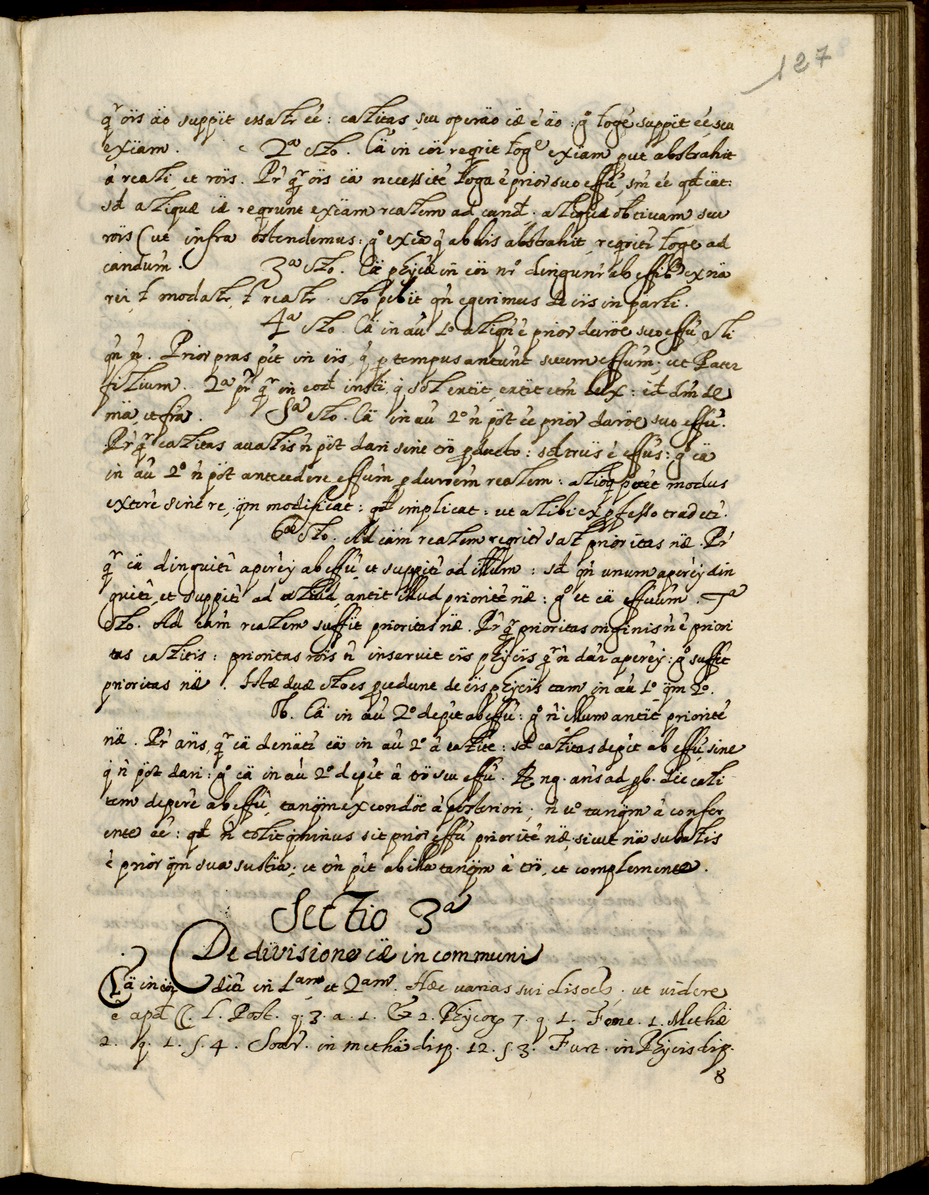 127
q̃r oïs äo suppit essatr eé : calitas, seu operäo cæ é äo : g̊ loge suppit eé, seu
exiam. 2ª clo. Cä in cöi reqrit loge exiam put abstrahit
á reali, et röis. Pr̃ q̃r oïs cä necessitè loga é prior suo effũ sm̃ eé qd̃ cät:
sd̃ aliquæ cæ reqrunt exiam realem ad cand̃. aliq̃ obcivam seu
röis (ut infra ostendemus: g̊ exia q̃ ab his abstrahit, reqritr loge ad
candum. 3ª clo. Cæ phycæ in cöi nö dingunr ab effib9 ex nä
rei, l modalr, l realr. clo pbit qn̄ egerimus de iis in parli.
4ª clo. Cä in aũ 1º aliqn̄ é prior duröe suo effũ ali
qn̄ n̄. Prior pras pt̃ in iis q̃ p tempus antunt suum effum, ut Pater
filium. 2ª pr̃ q̃r in eod̃ insti, q̃ sol extit, extit etm̃ lux: id̃ dm̃ de
mä, et frä. 5ª clo. Cä in aũ 2º n̄ pöt eé prior duröe suo effũ.
Pr̃ q̃r calitas aualis n̄ pöt dari sine trö pducto : sd̃ trus é effus: g̊ cä
in aũ 2º n̄ pöt antecedere effum pduröem realem. alioq̃ posset modus
extere sine re, qm̄ modificat: qd̃ implicat: ut alibi ex pfesso tradetr.
6ª clo. Ad cäm realem reqritr salt prioritas næ. Pr̃
q̃r cä dinguitr aperey ab effũ, et suppitr ad illum : sd̃ qn̄ unum aperey din
guitr, et suppitr ad aliud, antit illud prioritè næ : g̊ et cä effuum. 7ª
clo. Ad cäm realem suffit prioritas næ. Pr̃ q̃r prioritas originis n̄ é priori
tas calitis : prioritas röis n̄ inservit iis phycis q̃r n̄ dar aperey : g̊ suffit
prioritas næ. Istæ duæ cloes pcedunt de iis phycis tam in aũ 1º qm̄ 2º.
Ob. Cä in aũ 2º depit ab effũ: g̊ n̄ illum antit prioritè
næ. Pr̃ añs, q̃r cä denatr cä in aũ 2º á calitè : sd̃ calitas depit ab effũ, sine
q̃ n̄ pöt dari : g̊ cä in aũ 2º depit á trö seu effũ. R̃ ng. ans ad pb. dic cali
tem depere ab effũ, tanqm̄ ex condöe á posteriori, n̄ u̇ tanqm̄ á confer
ente eé : qd̃ n̄ tolit qminus sit prior effũ prioritè næ, sicut nä subalis
é prior qm̄ sua sustia, et tm̄ pit ab illa tanqm̄ á trö, et complemento.
Sectio 3ª
De divisione cæ in communi
Cä in cöi diditr in 1am et 2am. Hæc varias sui disoes, ut videre
é apd̃ C. l. Post. q. 3. a. 1. & 2. Phycor 7. q 1. Fone. 1. Methæ
2. q. 1. s. 4. Soar. in methä disp. 12. s 3. Furt. in Phycis disp.
8